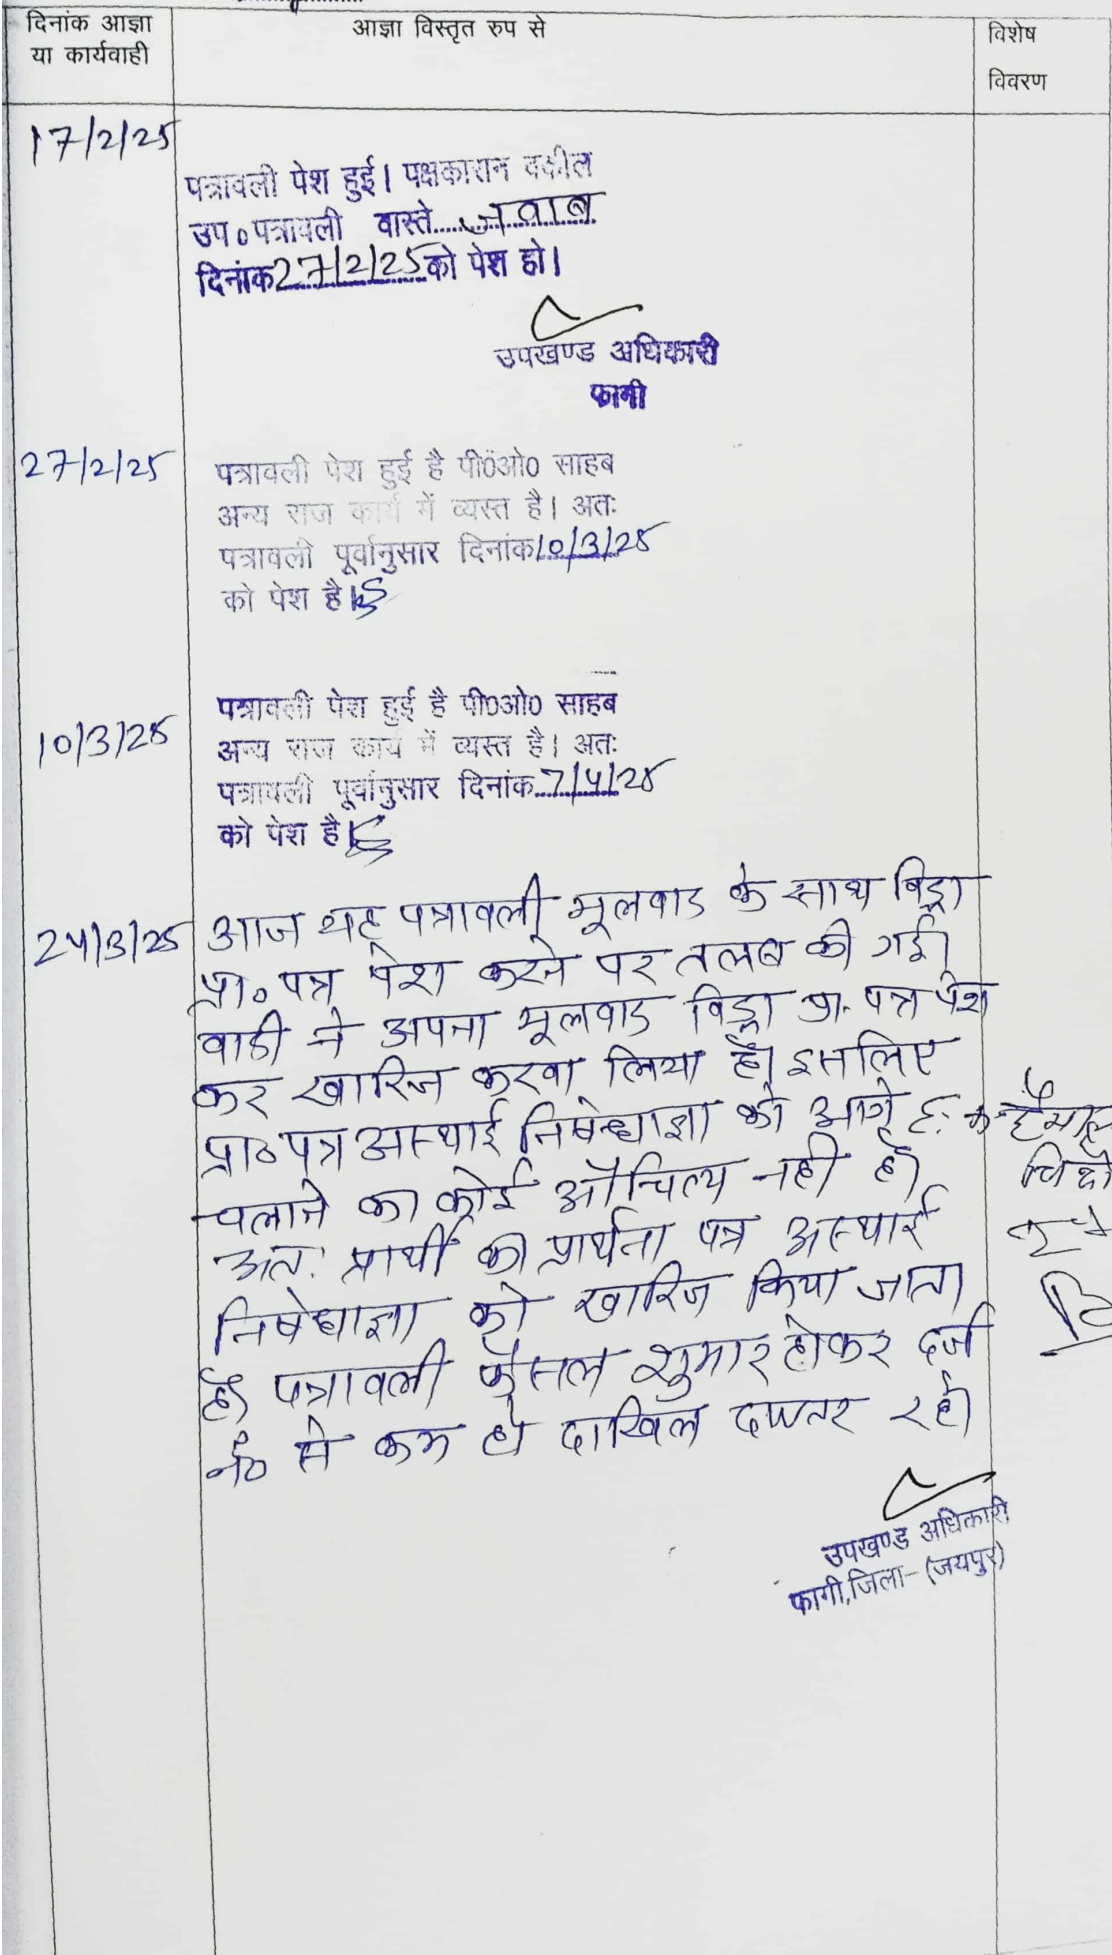 दिनांक आज्ञा
या कार्यवाही
आज्ञा विस्तृत रुप से
विशेष
विवरण
17/2/25
पत्रावली पेश हुई। पक्षकारान वकील
उप०पत्रावली वास्ते.....जवाब
दिनांक 27/2/25 को पेश हो।
उपखण्ड अधिकारी
फागी
27/2/25
पत्रावली पेश हुई है पी0ओ0 साहब
अन्य राज कार्य में व्यस्त है। अतः
पत्रावली पूर्वानुसार दिनांक 10/3/25
को पेश है।
10/3/25
पत्रावली पेश हुई है पी0ओ0 साहब
अन्य राज कार्य में व्यस्त है। अतः
पत्रावली पूर्वानुसार दिनांक 7/4/25
को पेश है।
24/3/25
आज यह पत्रावली मूलवाद के साथ विड्रा
प्रा० पत्र पेश करने पर तलब की गई।
वादी ने अपना मूलवाद विड्रा प्रा. पत्र पेश
कर खारिज करवा लिया है। इसलिए
प्रा०पत्र अस्थाई निषेधाज्ञा को आगे
चलाने का कोई औचित्य नही है।
अतः प्रार्थी का प्रार्थना पत्र अस्थाई
निषेधाज्ञा को खारिज किया जाता
है। पत्रावली फैसल शुमार होकर दर्ज
नं० से कम हो दाखिल दफ्तर रहे।
उपखण्ड अधिकारी
फागी,जिला-(जयपुर)